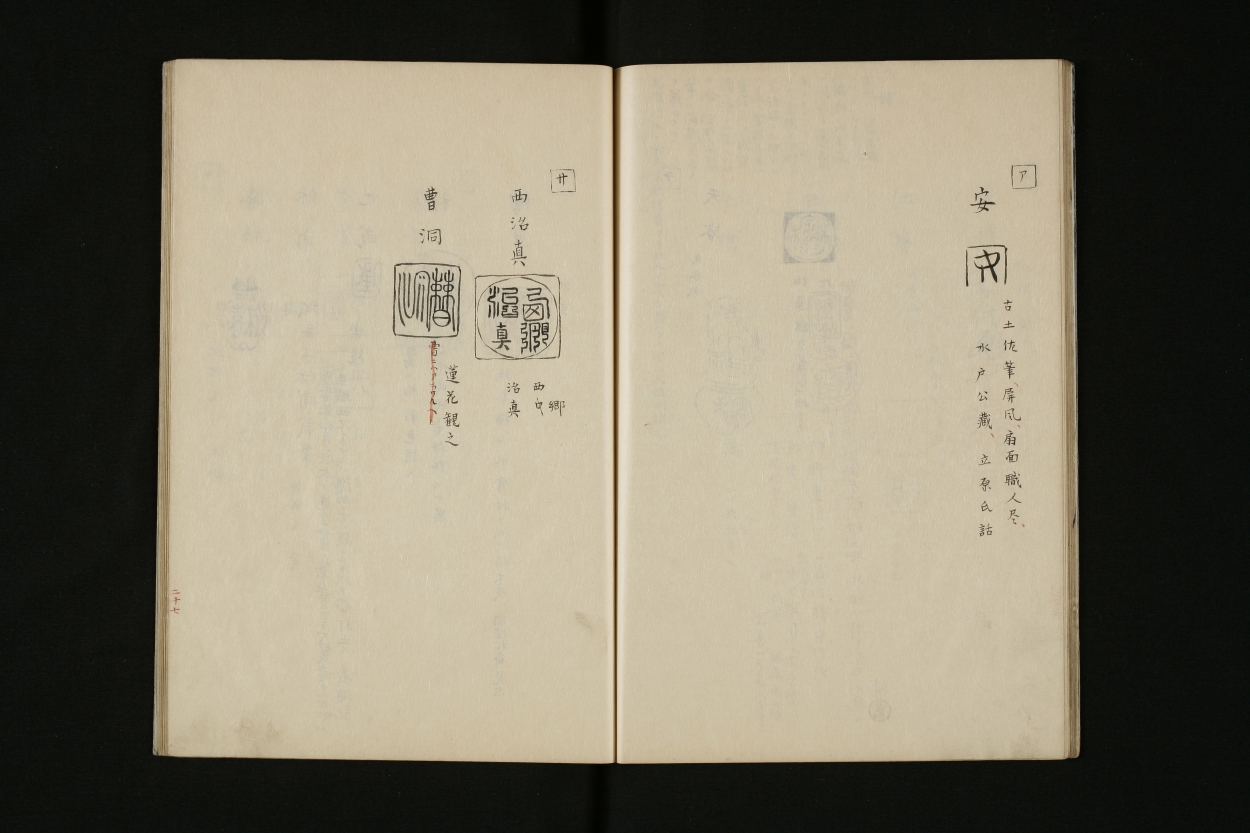 ア
安
安
古土佐筆、屏風、扇面職人尽、
水戸公蔵、立原氏話
サ
西洽真
西郷
洽真
西
郷
洽真
曹洞
曹洞
蓮花観之
二十七